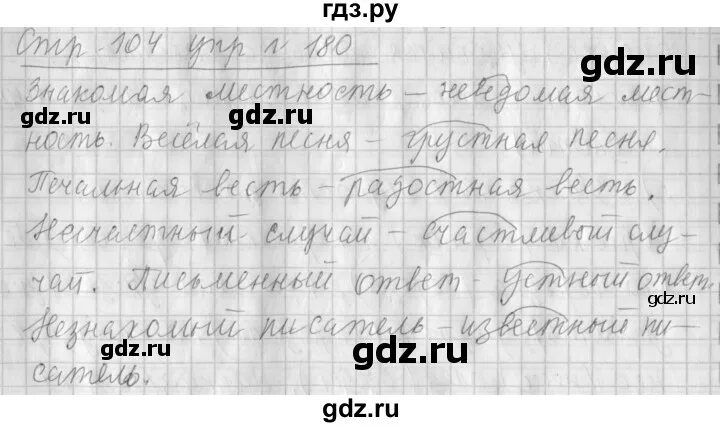 гдз.ру
Стр. 104 упр. № 180
Знакомая местность – неведомая мест-
ность. Весёлая песня – грустная песня.
Печальная весть – радостная весть.
Несчастный случай – счастливый слу-
чай. Письменный ответ – устный ответ.
Незнакомый писатель – известный пи-
сатель.
gdz.ru
gdz.ru
gdz.ru
gdz.ru
gdz.ru
gdz.ru
gdz.ru